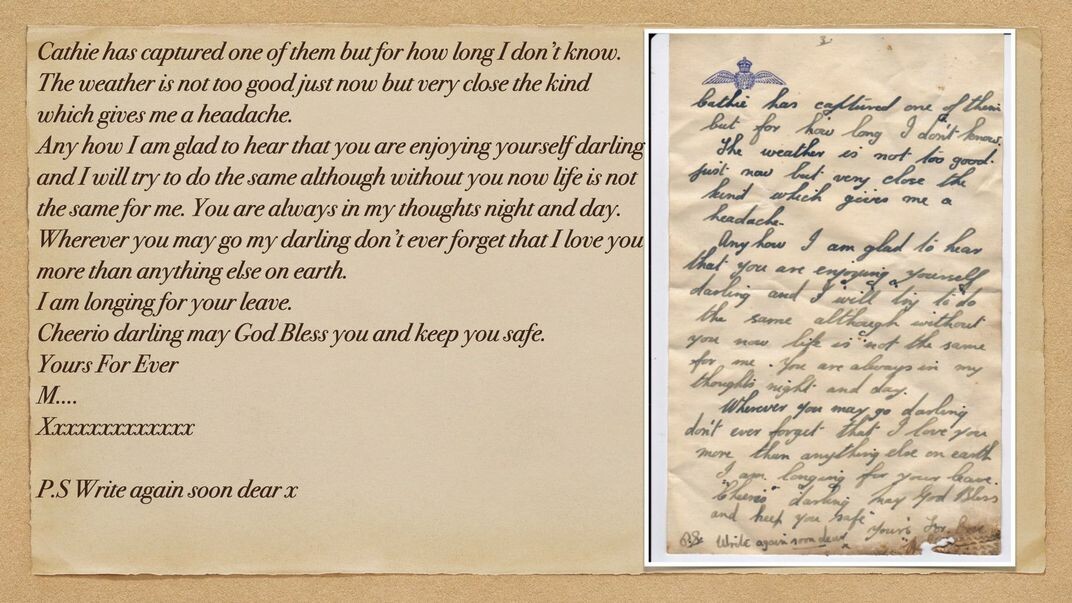 Cathie has captured one of them but for how long I don't know.
The weather is not too good just now but very close the kind
which gives me a headache.
Any how I am glad to hear that you are enjoying yourself darling
and I will try to do the same although without you now life is not
the same for me. You are always in my thoughts night and day.
Wherever you may go my darling don't ever forget that I love you
more than anything else on earth.
I am longing for your leave.
Cheerio darling may God Bless you and keep you safe.
Yours For Ever
M....
Xxxxxxxxxxxxxx
P.S Write again soon dear x
Cathie has captured one of them
but for how long I don't know.
The weather is not too good
just now but very close the
kind which gives me a
headache.
Anyhow I am glad to hear
that you are enjoying yourself
darling and I will try to do
the same although without
you now life is not the same
for me. You are always in my
thoughts night and day.
Wherever you may go darling
don't ever forget that I love you
more than anything else on earth
I am longing for your leave.
"Cheerio" darling may God Bless
and keep you safe
yours For Ever
P.S. Write again soon dear x